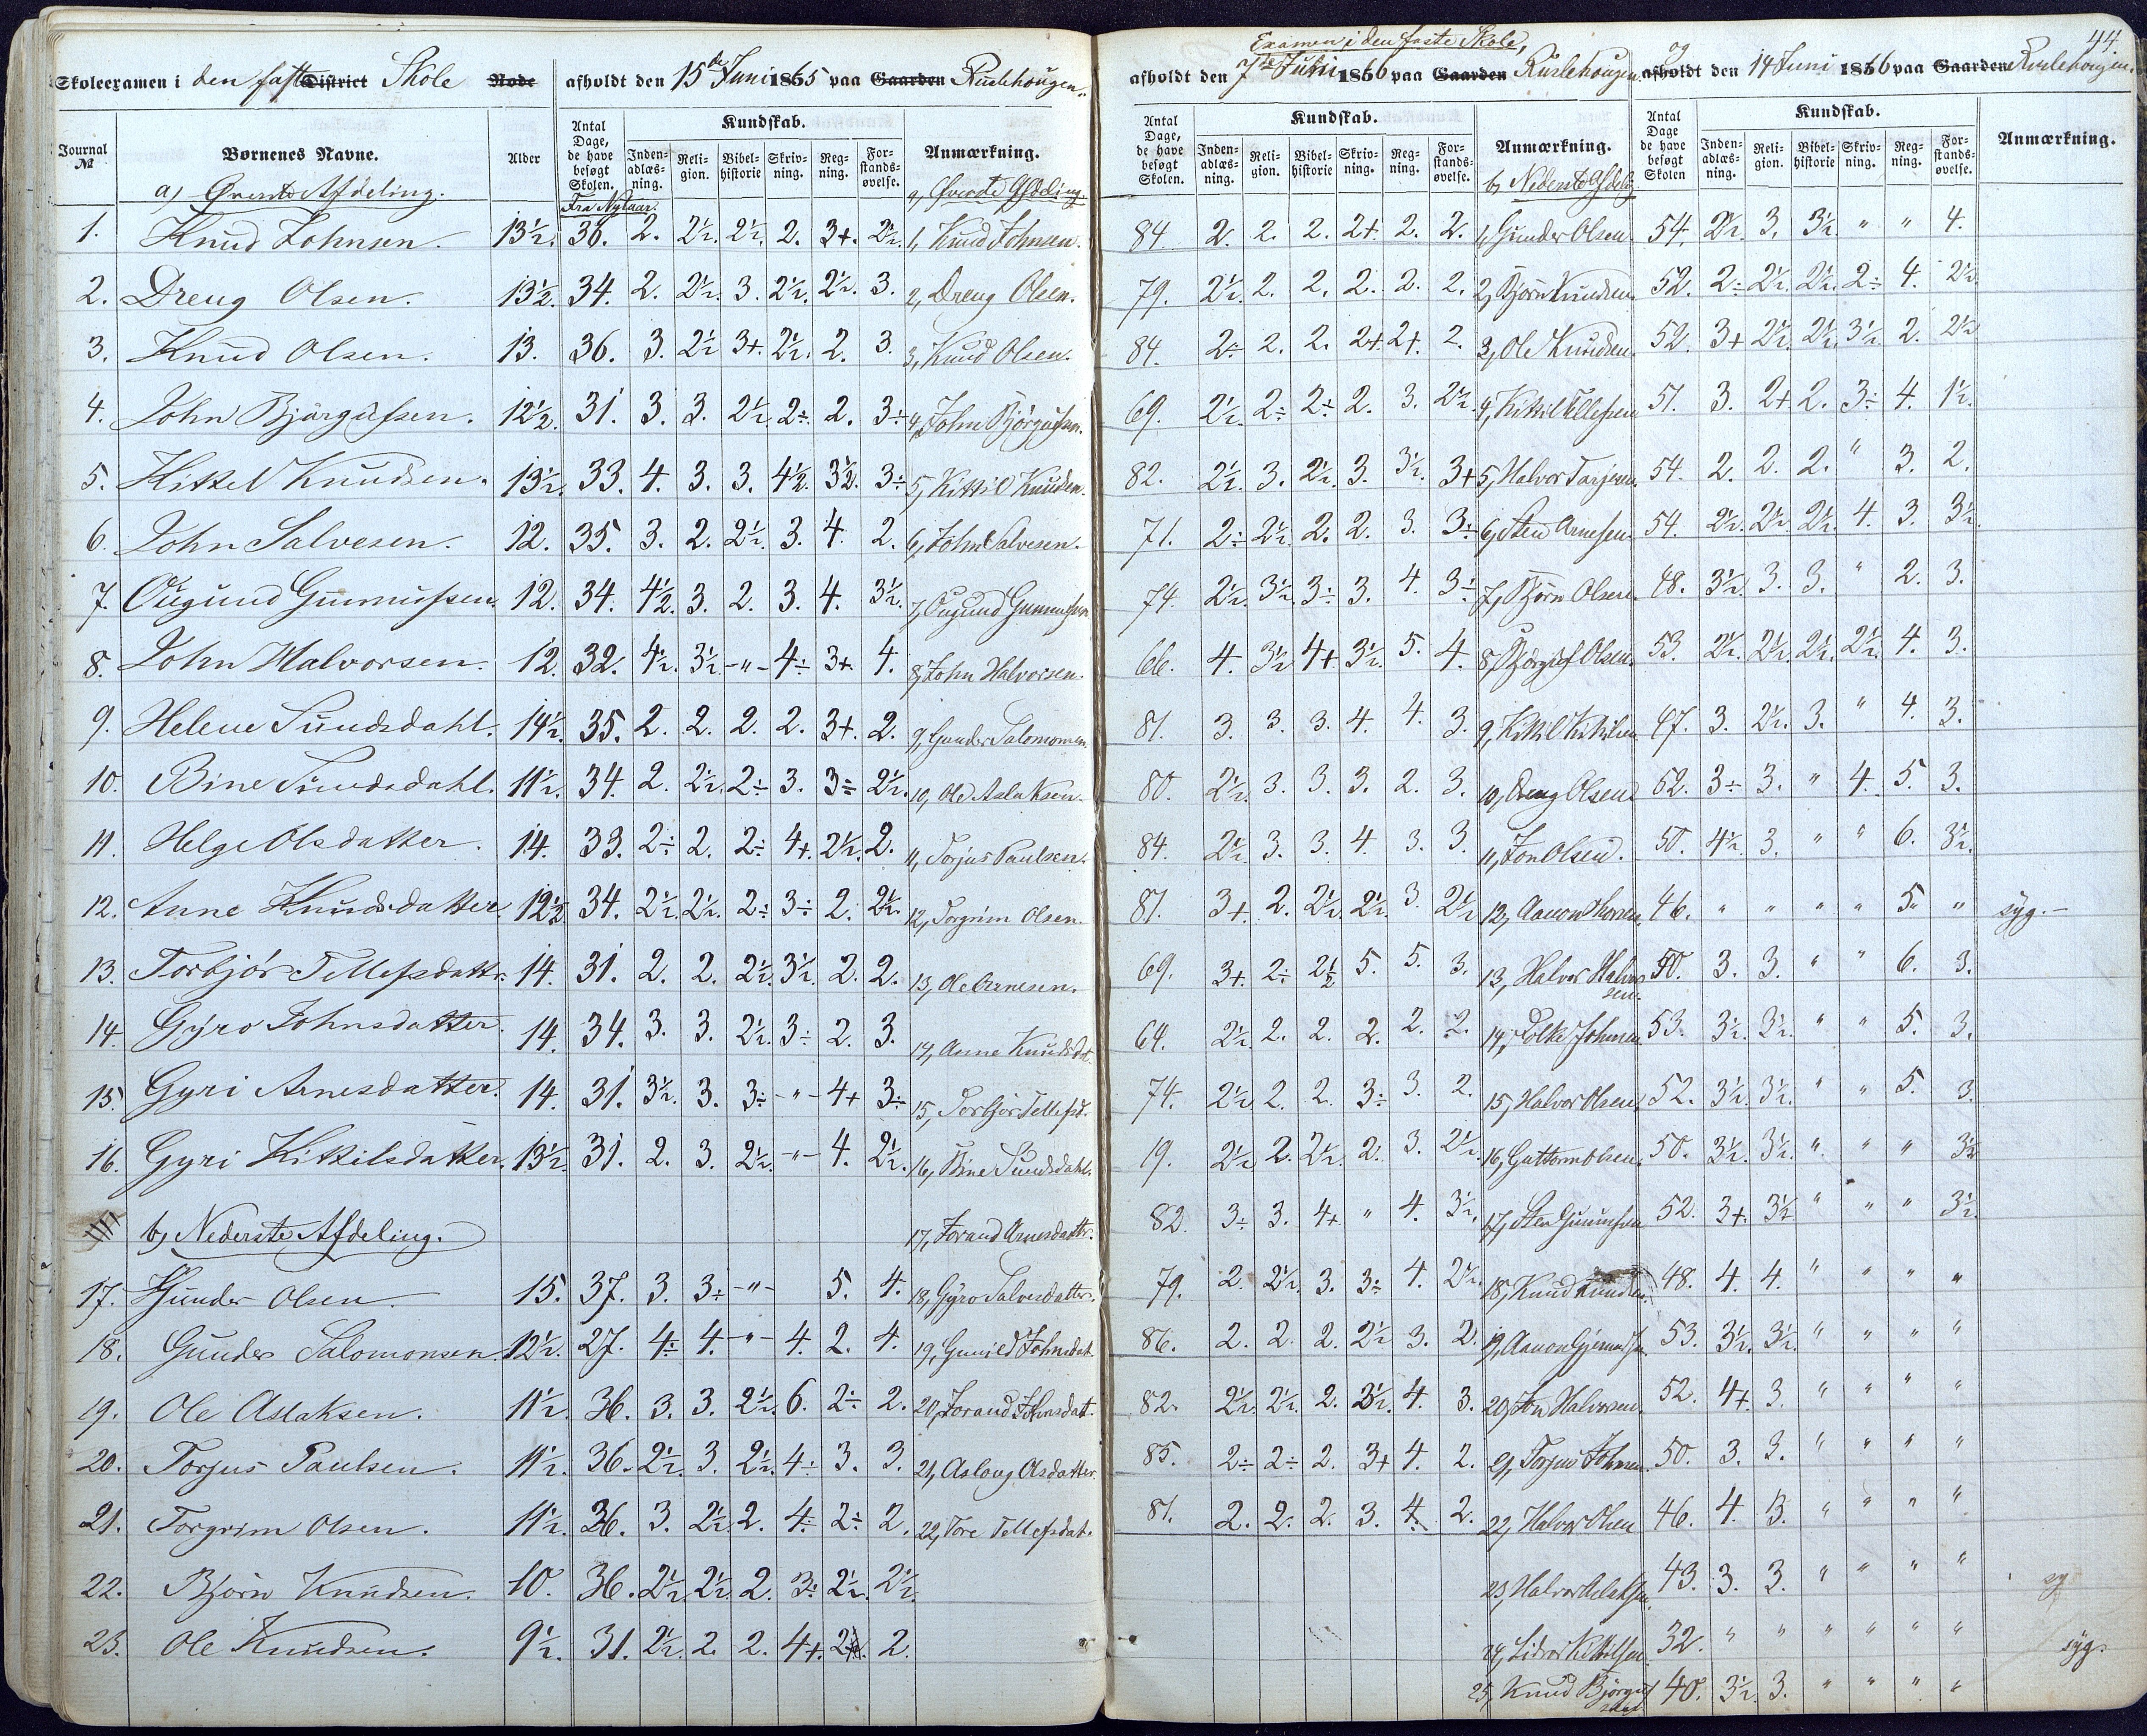 44.
Skoleexamen i den faste District Skole Rode afholdt den 15de Juni 1865 paa Gaarden Ruslehougen.
Journal № Børnenes Navne. Alder Antal Dage, de have besøgt Skolen. Kundskab. Indenadlæsning. Religion. Bibelhistorie Skrivning. Regning. Forstandsøvelse. Anmærkning.
a) Øverste Afdeling. Fra Nytaar. a, Øverste Afdeling.
1. Knud Johnsen. 13½. 36. 2. 2½. 2½. 2. 3+. 2½. 1, Knud Johnsen.
2. Dreng Olsen. 13½. 34. 2. 2½. 3. 2½. 2½. 3. 2, Dreng Olsen.
3. Knud Olsen. 13. 36. 3. 2½ 3+. 2½. 2. 3. 3, Knud Olsen.
4. John Bjørgufsen. 12½. 31. 3. 3. 2½. 2÷. 2. 3÷ 4, John Bjørgufsen.
5. Kittel Knudsen. 13½. 33. 4. 3. 3. 4½. 3½. 3÷ 5, Kittil Knudsen.
6. John Salvesen. 12. 35. 3. 2. 2½. 3. 4. 2. 6, John Salvesen.
7. Ougund Gunnufsen. 12. 34. 4½. 3. 2. 3. 4. 3½. 7, Ougund Gunnufsen
8. John Halvorsen. 12. 32. 4½. 3½. -"- 4÷ 3+. 4. 8, John Halvorsen.
9. Helene Sundsdahl. 14½. 35. 2. 2. 2. 2. 3+. 2. 9, Gunder Salomonsen
10. Bine Sundsdahl. 11½. 34. 2. 2½. 2÷ 3. 3÷ 2½. 10, Ole Aslaksen.
11. Helge Olsdatter. 14. 33. 2÷ 2. 2÷ 4+. 2½. 2. 11, Torjus Paulsen.
12. Anne Knudsdatter. 12½ 34. 2½. 2½. 2÷ 3÷ 2. 2½. 12, Torgrim Olsen.
13. Torbjør Tellefsdattr. 14. 31. 2. 2. 2½. 3½. 2. 2. 13, Ole Arnesen.
14. Gyro Johnsdatter. 14. 34. 3. 3. 2½. 3÷ 2. 3. 14, Anne Knudsdat.
15. Gyri Arnesdatter. 14. 31. 3½. 3. 3÷ -"- 4+ 3÷ 15, Torbjør Tellefsd.
16. Gyri Kittilsdatter. 13½. 31. 2. 3. 2½. -"- 4. 2½. 16, Bine Sundsdahl.
b, Nederste Afdeling. 17, Jorand Arnesdattr.
17. Gunder Olsen. 15. 37. 3. 3÷ -"- 5. 4. 18, Gyro Salvesdattr.
18. Gunder Salomonsen. 12½. 27. 4÷ 4. -"- 4. 2. 4. 19, Gunild Johnsdat.
19. Ole Aslaksen. 11½. 36. 3. 3. 2½. 6. 2÷ 2. 20, Jorand Johnsdatt.
20. Torjus Paulsen. 11½. 36. 2½. 3. 2½. 4÷ 3. 3. 21, Aslaug Olsdatter.
21. Torgrim Olsen. 11½. 36. 3. 2½. 2. 4÷ 2÷ 2. 22, Tore Tellefsdat.
22. Bjørn Knudsen. 10. 36. 2½. 2½. 2. 3÷ 2½. 2½.
23. Ole Knudsen. 9½. 31. 2½. 2. 2. 4+. 2. 2.
Examen i den faste Skole,
afholdt den 7de Juni 1866 paa Gaarden Ruslehougen. og afholdt den 14 Juni 1866 paa Gaarden Ruslehougen.
Antal Dage, de have besøgt Skolen. Kundskab. Indenadlæsning. Religion. Bibelhistorie Skrivning. Regning. Forstandsøvelse. Anmærkning. Antal Dage de have besøgt Skolen Kundskab. Indenadlæsning. Religion. Bibelhistorie Skrivning. Regning. Forstandsøvelse. Anmærkning.
b, Nederste Afdelg
84 2. 2. 2. 2+. 2. 2. 1, Gunder Olsen. 54. 2½. 3. 3½. " " 4.
79. 2½. 2. 2. 2. 2. 2. 2, Bjørn Knudsen. 52. 2÷ 2½. 2½. 2÷ 4. 2½.
84. 2÷ 2. 2. 2+. 2+. 2. 3, Ole Knudsen. 52. 3+ 2½. 2½. 3½. 2. 2½
69. 2½. 2÷ 2÷ 2. 3. 2½. 4, Kittil Tellefsen 51. 3. 2+ 2. 3÷ 4. 1½.
82. 2½. 3. 2½. 3. 3½. 3+ 5, Halvor Tarjesen. 54. 2. 2. 2. " 3. 2.
71. 2÷ 2½. 2. 2. 3. 3÷ 6, Sten Arnesen. 54. 2½. 2½. 2½. 4. 3. 3½.
74. 2½. 3½. 3÷ 3. 4. 3÷ 7, Bjørn Olsen. 48. 3½. 3. 3. " 2. 3.
66. 4. 3½ 4+ 3½. 5. 4. 8, Bjørguf Olsen. 53. 2½. 2½. 2½. 2½. 4. 3.
81. 3. 3. 3. 4. 4. 3. 9, Kittil Kittilsen 47. 3. 2½. 3. " 4. 3.
80. 2½. 3. 3. 3. 2. 3. 10, Dreng Olsen. 52. 3÷ 3. " 4. 5. 3.
84. 2½. 3. 3. 4. 3. 3. 11, Jon Olsen. 50. 4½. 3. " " 6. 3½.
81. 3+. 2. 2½. 2½. 3. 2½ 12, Aanon 46. " " " " 5. " syg.-
69. 3+. 2÷ 2½ 5. 5. 3. 13, Halvor Halvorsen. 50. 3. 3. " " 6. 3.
64. 2½. 2. 2. 2. 2. 2. 14, Folke Johnsen 53. 3½. 3½. " " 5. 3.
74. 2½. 2. 2. 3÷ 3. 2. 15, Halvor Olsen. 52. 3½. 3½. " " 5. 3.
19. 2½ 2. 2½. 2. 3. 2½. 16, Guttorm Olsen. 50. 3½. 3½. " " " 3½
82. 3÷ 3. 4+. " 4. 3½. 17, Sten Gunnufsen 52. 3+. 3½ " " " 3½.
79. 2. 2½. 3. 3÷ 4. 2½. 18, Knud Knudsen. 48. 4. 4. " " " "
86. 2. 2. 2. 2½ 3. 2. 19, Aanon 53. 3½. 3½. " " " "
82. 2½. 2½. 2. 3½. 4. 3. 20, Jon Halvorsen. 52. 4+. 3. " " " "
85. 2÷ 2÷ 2. 3+ 4. 2. 21, Torjus Johnsen. 50. 3. 3. " " " "
81. 2. 2. 2. 3. 4. 2. 22, Halvor Olsen 46. 4. 3. " " " "
23, Halvor Aslaksen. 43. 3. 3. " " " "
24, Kittilsen. 32. " " " " " " syg.
25, Knud Bjørgufsen. 40. 3½. 3. " " " "